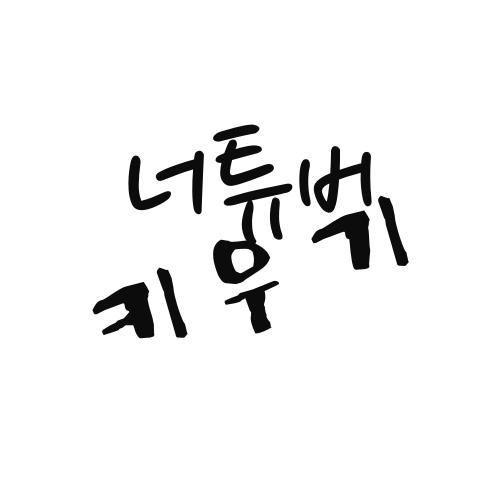 너튜버
키우기